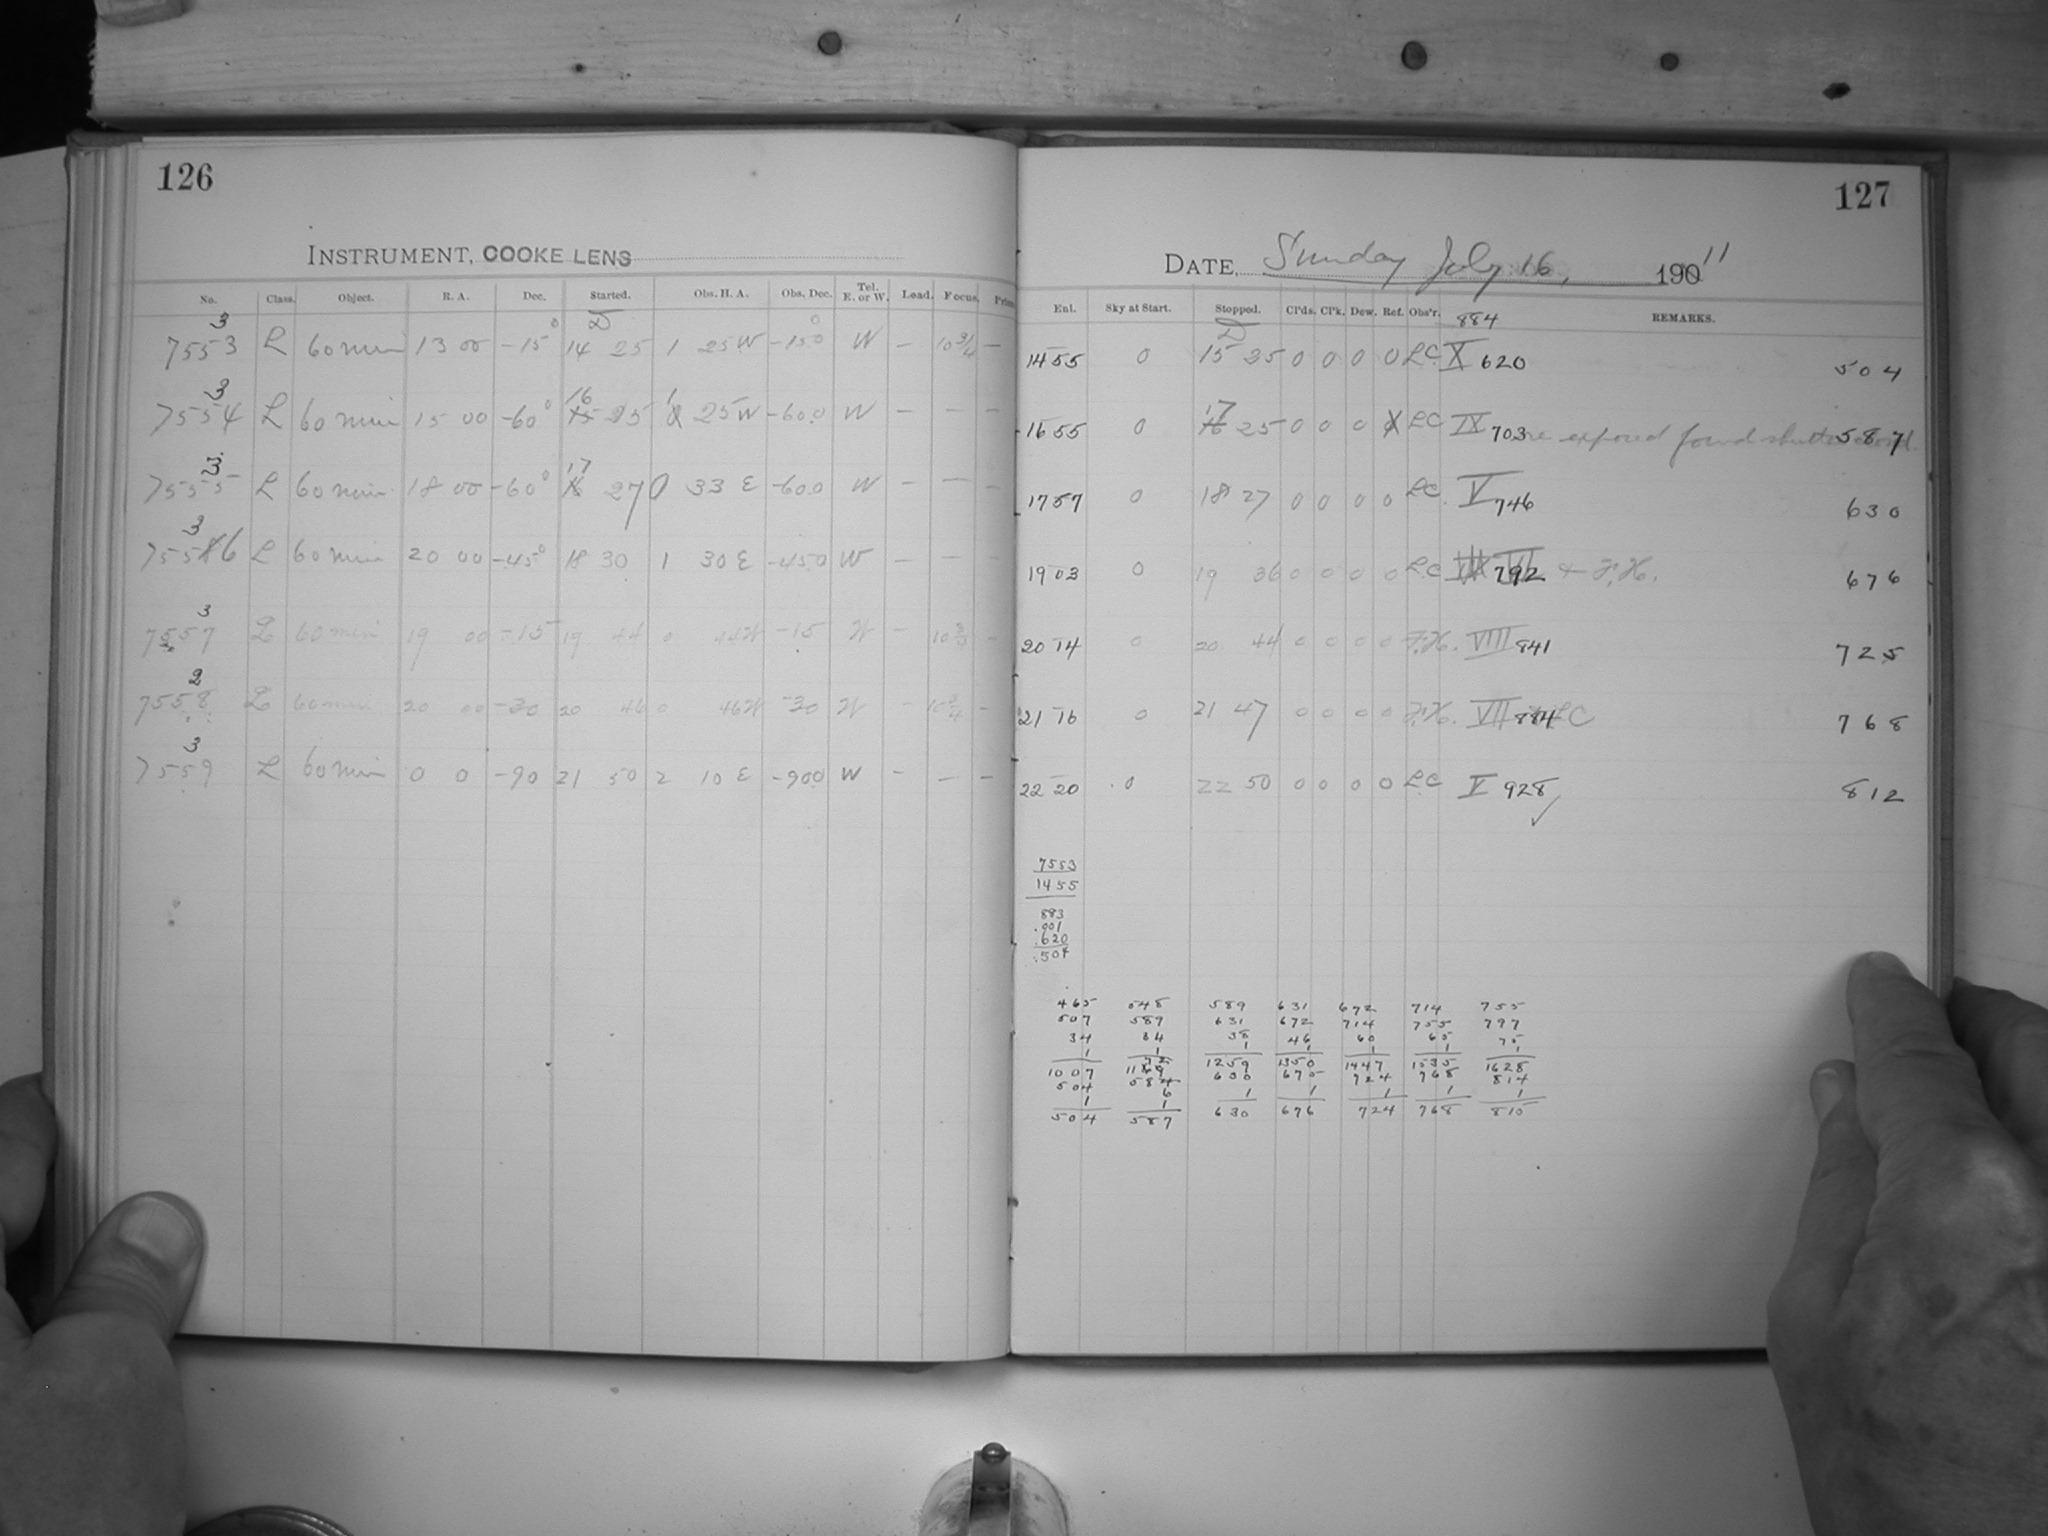 126
INSTRUMENT, COOKE LENS
No. Class. Object. R. A. Dec. Started. Obs. H. A. Obs. Dec. Tel. E. or W. Load. Focus.
3
7553 L 60 min 13 00 -15° 14 25 1 25 W -15.0 W — 10 3/4 —
3 16
7554 L 60 min 15 00 -60° 15 25 25 W -60.0 W — — —
3 17
7555 L 60 min 18 00 -60° 16 27 0 33 E -60.0 W — — —
3
7556 L 60 min 20 00 -45° 18 30 1 30 E -45.0 W — — —
3
7557 L 60 min 19 00 -15 19 44 0 44 W -15 W — 10 3/4 —
2
7558 L 60 min 20 00 -30 20 46 0 46 W -30 W — 10 3/4 —
3
7559 L 60 min 0 0 -90 21 50 2 10 E -90.0 W — — —
127
DATE, Sunday July 16, 190 11
Enl. Sky at Start. Stopped. Cl'ds. Cl'k. Dew. Ref. Obs'r. REMARKS.
884
14 55 0 15 25 0 0 0 0 LC X 620 504
17
16 55 0 16 25 0 0 0 LC IX 703 re exposed found shutter 587
17 57 0 18 27 0 0 0 0 LC V 746 630
19 03 0 19 36 0 0 0 0 LC 792 + F.H. 676
20 14 0 20 44 0 0 0 0 F.H. VIII 841 725
21 16 0 21 47 0 0 0 0 F.H. VII 884 LC 768
22 20 0 22 50 0 0 0 0 LC V 928 812
✓
7553
1455
883
.001
.620
.504
465 548 589 631 672 714 755
507 589 631 672 714 755 797
34 34 38 46 60 65 75
1 1 1 1 1 1 1
1007 1259 1350 1447 1535 1628
504 584 630 675 724 768 814
1 6 1 1 1 1 1
1
504 587 630 676 724 768 815